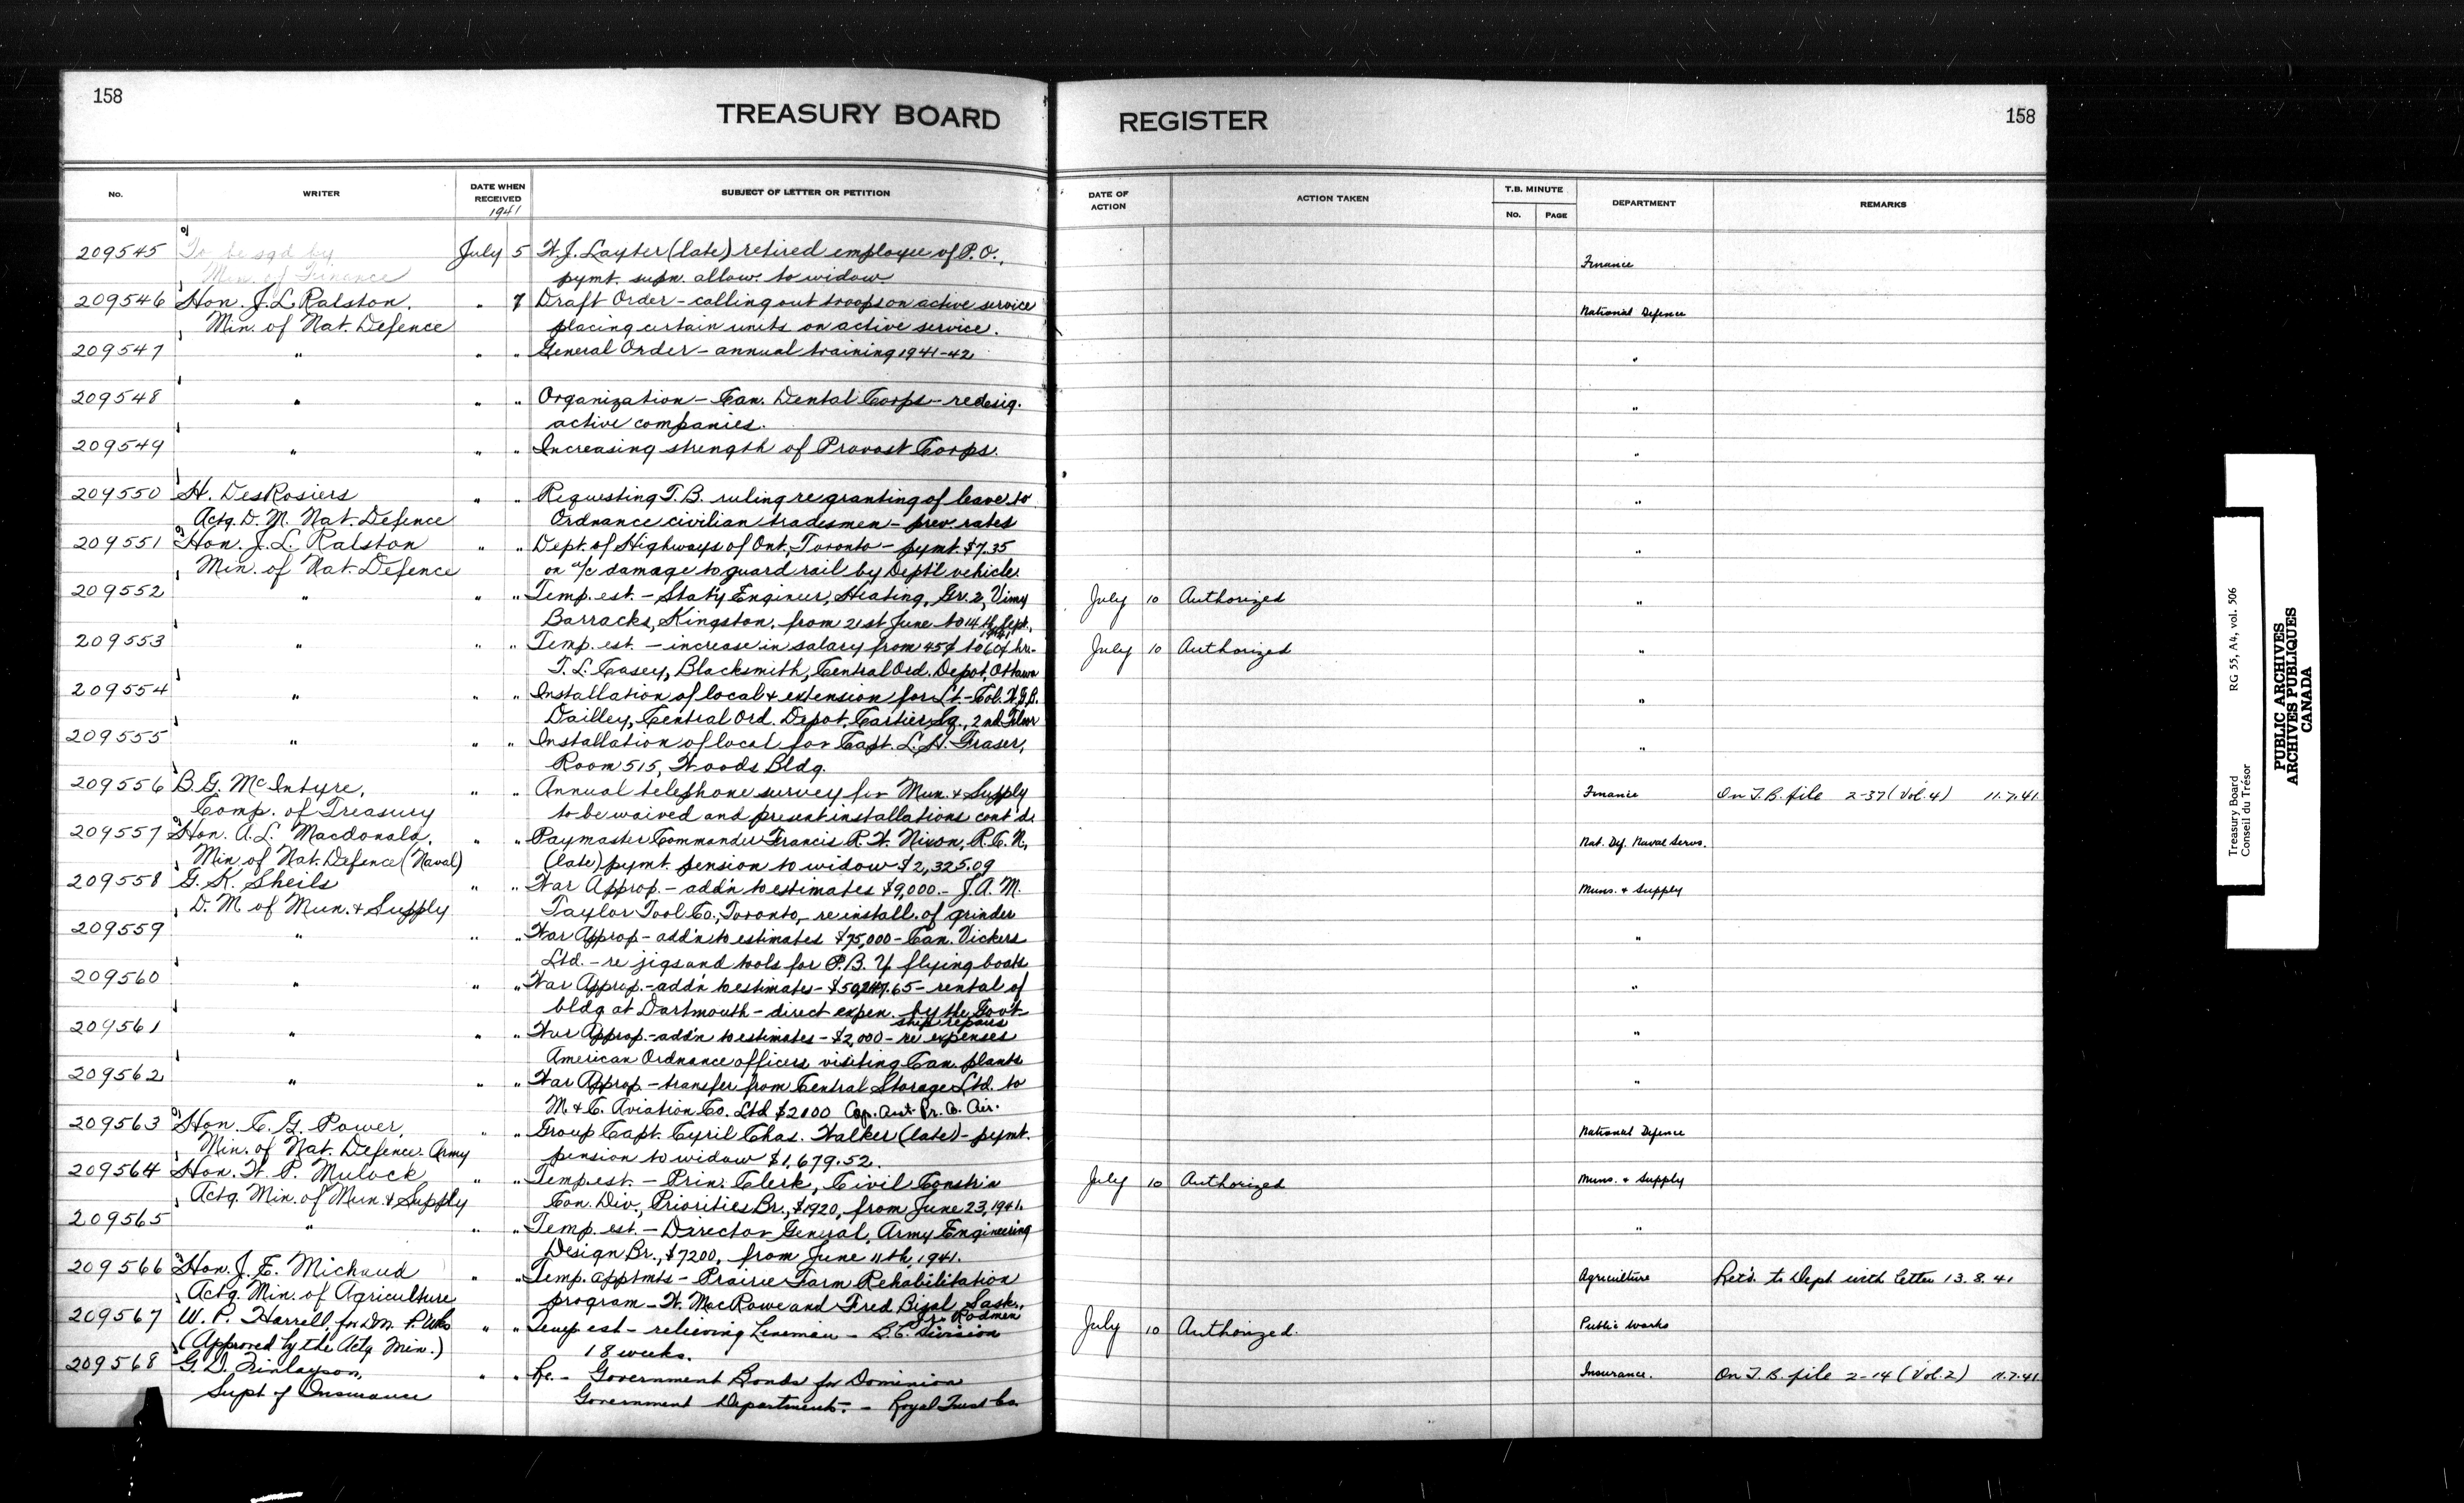 158
TREASURY BOARD
REGISTER
158
No.
WRITER
DATE WHEN RECEIVED
1941
SUBJECT OF LETTER OR PETITION
DATE OF ACTION
ACTION TAKEN
T.B. MINUTE
NO.
PAGE
DEPARTMENT
REMARKS
209545 To be sgd by July 5 W.J. Layter (late) retired employee of P.O.,
Min. of Finance pymt. supn. allow. to widow. Finance
209546 Hon. J.L. Ralston. " 7 Draft Order - calling out troops on active service
Min. of Nat. Defence placing certain units on active service. National Defence
209547 " " " General Order - annual training 1941-42 "
209548 " " " Organization - Can. Dental Corps - redesig. "
active companies.
209549 " " " Increasing strength of Provost Corps. "
209550 H. DesRosiers " " Requesting T.B. ruling re granting of leave to "
Actg. D.M. Nat. Defence Ordnance civilian tradesmen - prev. rates
209551 Hon. J.L. Ralston " " Dept. of Highways of Ont., Toronto - pymt. $7.35 "
Min. of Nat. Defence on a/c damage to guard rail by Dept'l vehicle.
209552 " " " Temp. est. - Stat'y Engineer, Heating, Gr. 2, Vimy July 10 Authorized "
Barracks, Kingston, from 21st June to 14th Sept. 1941
209553 " " " Temp. est. - increase in salary from 45¢ to 60¢ hr. - July 10 Authorized "
T.L. Casey, Blacksmith, Central Ord. Depot, Ottawa
209554 " " " Installation of local & extension for Lt.-Col. W.G.B. "
Dailley, Central Ord. Depot, Cartier Sq., 2nd Floor
209555 " " " Installation of local for Capt. L.H. Fraser, "
Room 515, Woods Bldg.
209556 B.G. McIntyre, " " Annual telephone survey for Mun. & Supply Finance On T.B. file 2-37 (Vol. 4) 11.7.41
Comp. of Treasury to be waived and present installations cont'd.
209557 Hon. A.L. Macdonald, " " Paymaster Commander Francis R.W. Nixon, R.C.N., Nat. Def. Naval Servs.
Min. of Nat. Defence (Naval) (late) pymt. pension to widow $2,325.09
209558 G.K. Sheils " " War Approp. - add'n to estimates $9,000. - J.A.M. Muns. & Supply
D.M. of Mun. & Supply Taylor Tool Co., Toronto, - re install. of grinder
209559 " " " War Approp - add'n to estimates $75,000 - Can. Vickers "
Ltd. - re jigs and tools for P.B.Y. flying boats
209560 " " " War Approp. - add'n to estimates - rental of "
bldg at Dartmouth - direct expen. by the Gov't
ship repairs
209561 " " " War Approp. - add'n to estimates - $2,000 - re expenses "
American Ordnance officers visiting Can. plants
209562 " " " War Approp - transfer from Central Storage Ltd. to "
M. & C. Aviation Co. Ltd $2100 Cap. Ast. Pr. Air.
209563 Hon. C.G. Power, " " Group Capt. Cyril Chas. Walker (late) - pymt. National Defence
Min. of Nat. Defence. Army pension to widow $1,679.52.
209564 Hon. W.P. Mulock " " Temp est. - Prin. Clerk, Civil Constr'n July 10 Authorized Muns. & Supply
Actg. Min. of Mun. & Supply Con. Div., Priorities Br., $1920, from June 23, 1941.
209565 " " " Temp. est. - Director General, Army Engineering "
Design Br., $7200, from June 11th, 1941.
209566 Hon. J.E. Michaud " " Temp. apptmts - Prairie Farm Rehabilitation Agriculture Ret'd. to Dept with letter 13.8.41
Actg. Min. of Agriculture program - W. MacRowe and Fred Bizal, Sask.,
Jr. Rodmen
209567 W.P. Harrell, for Dm. P. Wks " " Temp est - relieving Lineman - B.C. Division July 10 Authorized. Public Works
(Approved by the Actg Min.) 18 weeks.
209568 G.D. Finlayson, " " Re. - Government Bonds for Dominion Insurance. On T.B. file 2-14 (Vol. 2) 11.7.41
Supt of Insurance Government Departments. - Royal Trust Co.
Treasury Board
Conseil du Trésor
RG 55, A4, vol. 506
PUBLIC ARCHIVES
ARCHIVES PUBLIQUES
CANADA